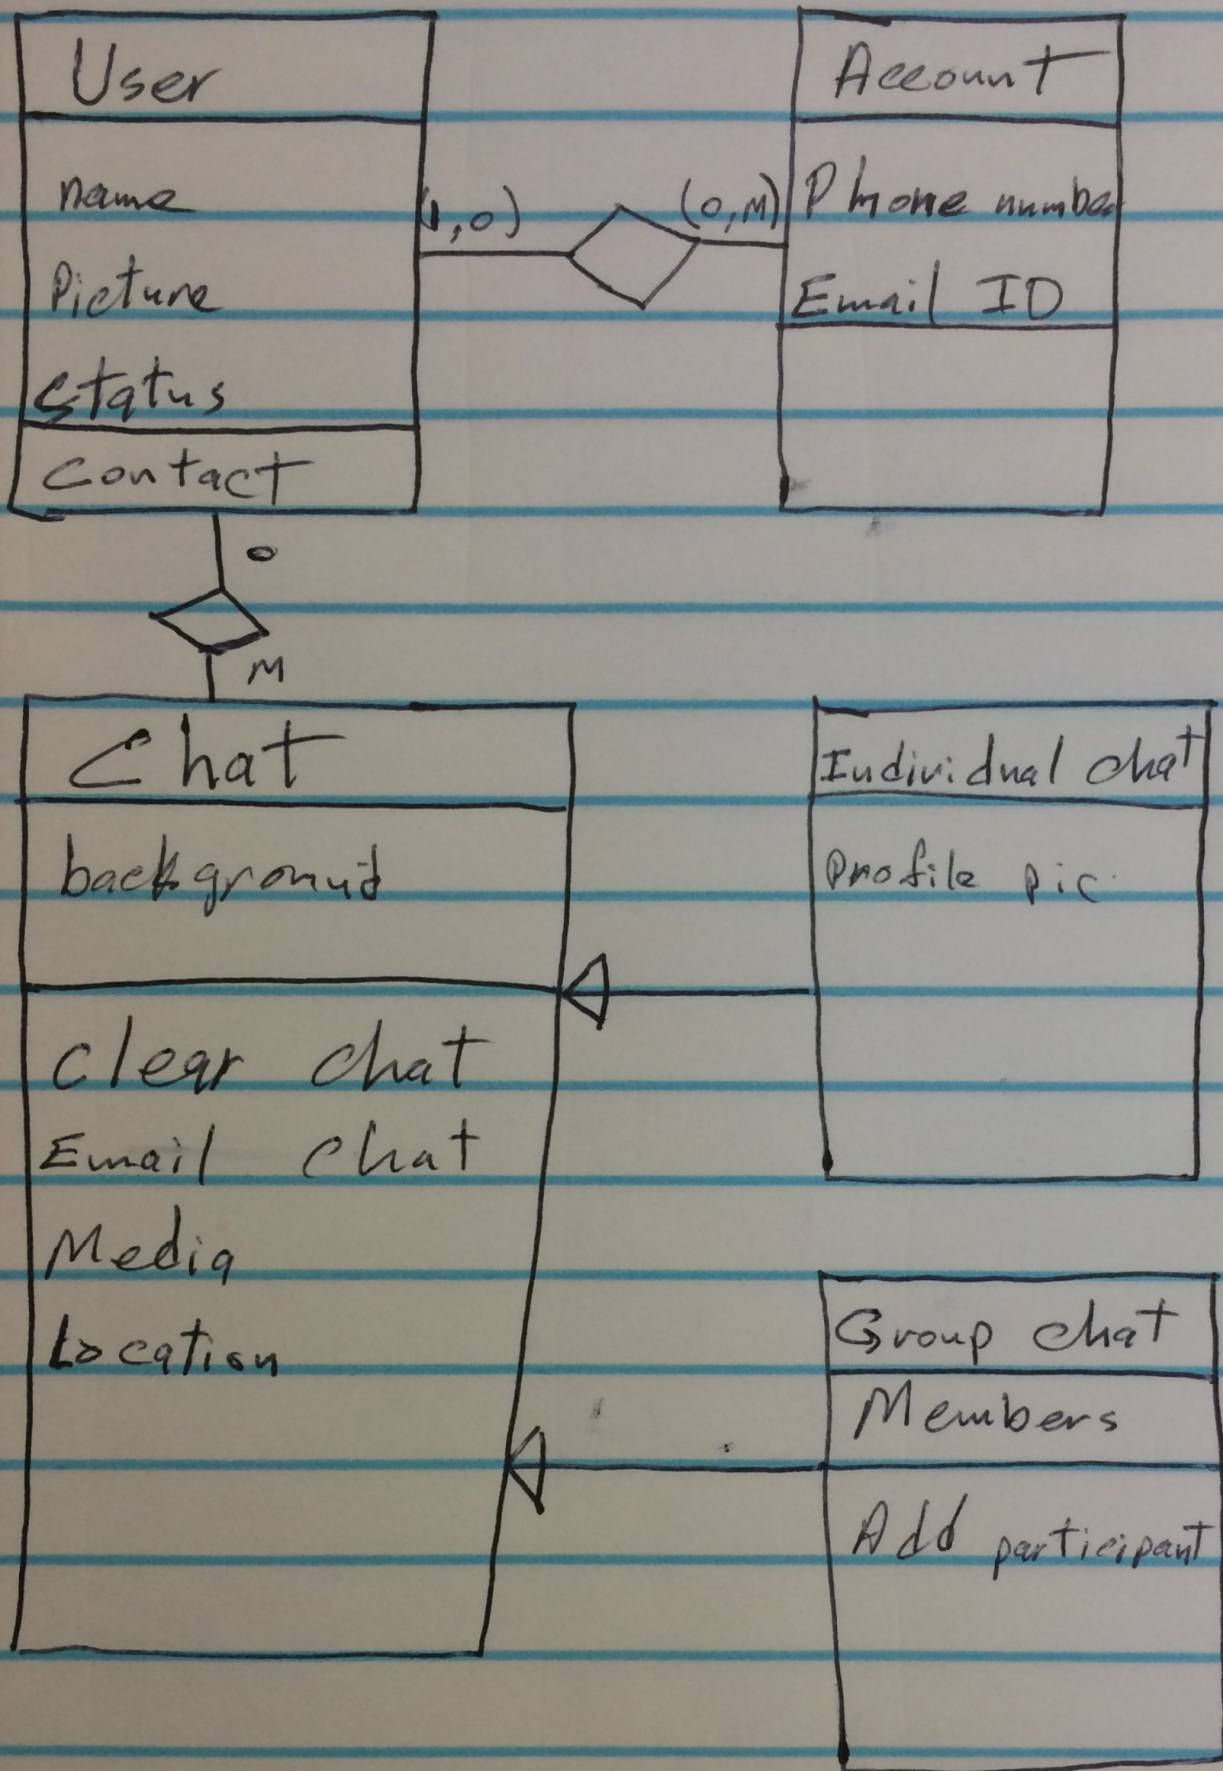 User
name
Picture
Status
Contact
(1,0)
(0,M)
Account
Phone number
Email ID
0
M
Chat
background
Clear chat
Email chat
Media
Location
Individual chat
Profile pic
Group chat
Members
Add participant